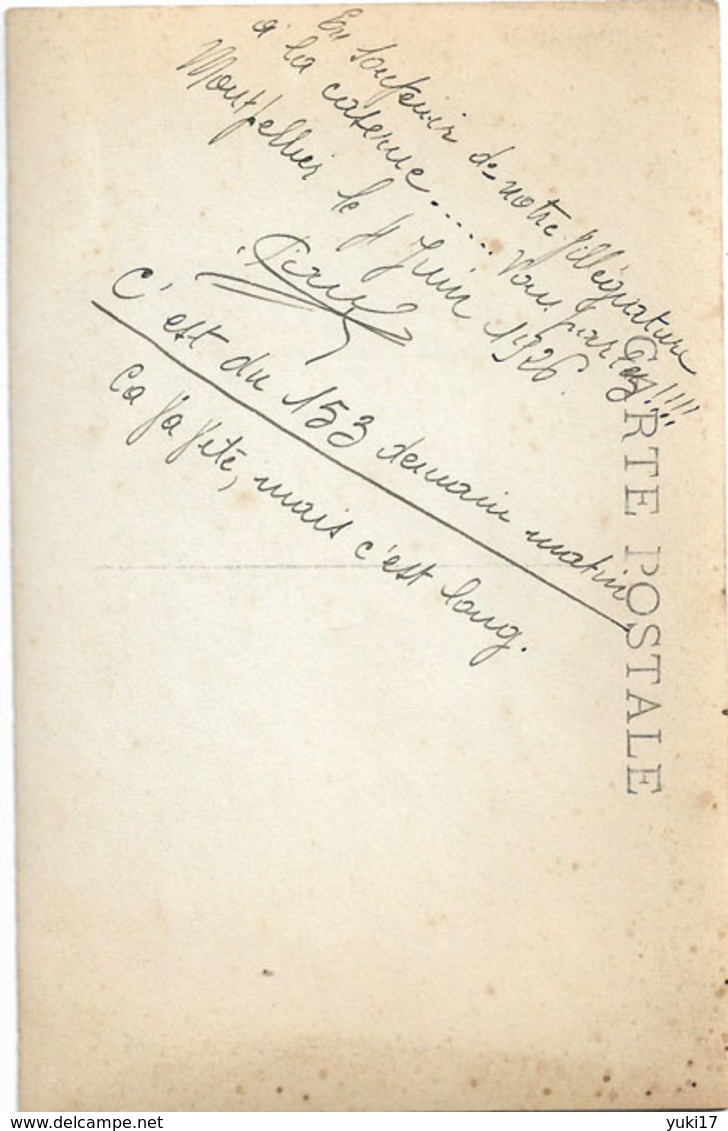 En souvenir de notre villégiature
à la caserne...... vous parlez!!!!...
Montpellier le 4 Juin 1926.
C'est du 153 demain matin
Ca va vite, mais c'est long.
CARTE POSTALE
delcampe.net
yuki17